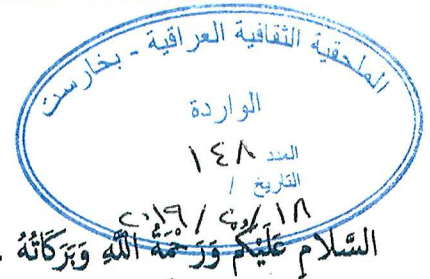 الملحقية الثقافية العراقية - بخارست
الواردة
العدد ١٤٨
التاريخ /
١٨ / ٢ / ٢٠١٩
السَّلَامُ عَلَيْكُمْ وَرَحْمَةُ اللَّهِ وَبَرَكَاتُهُ .